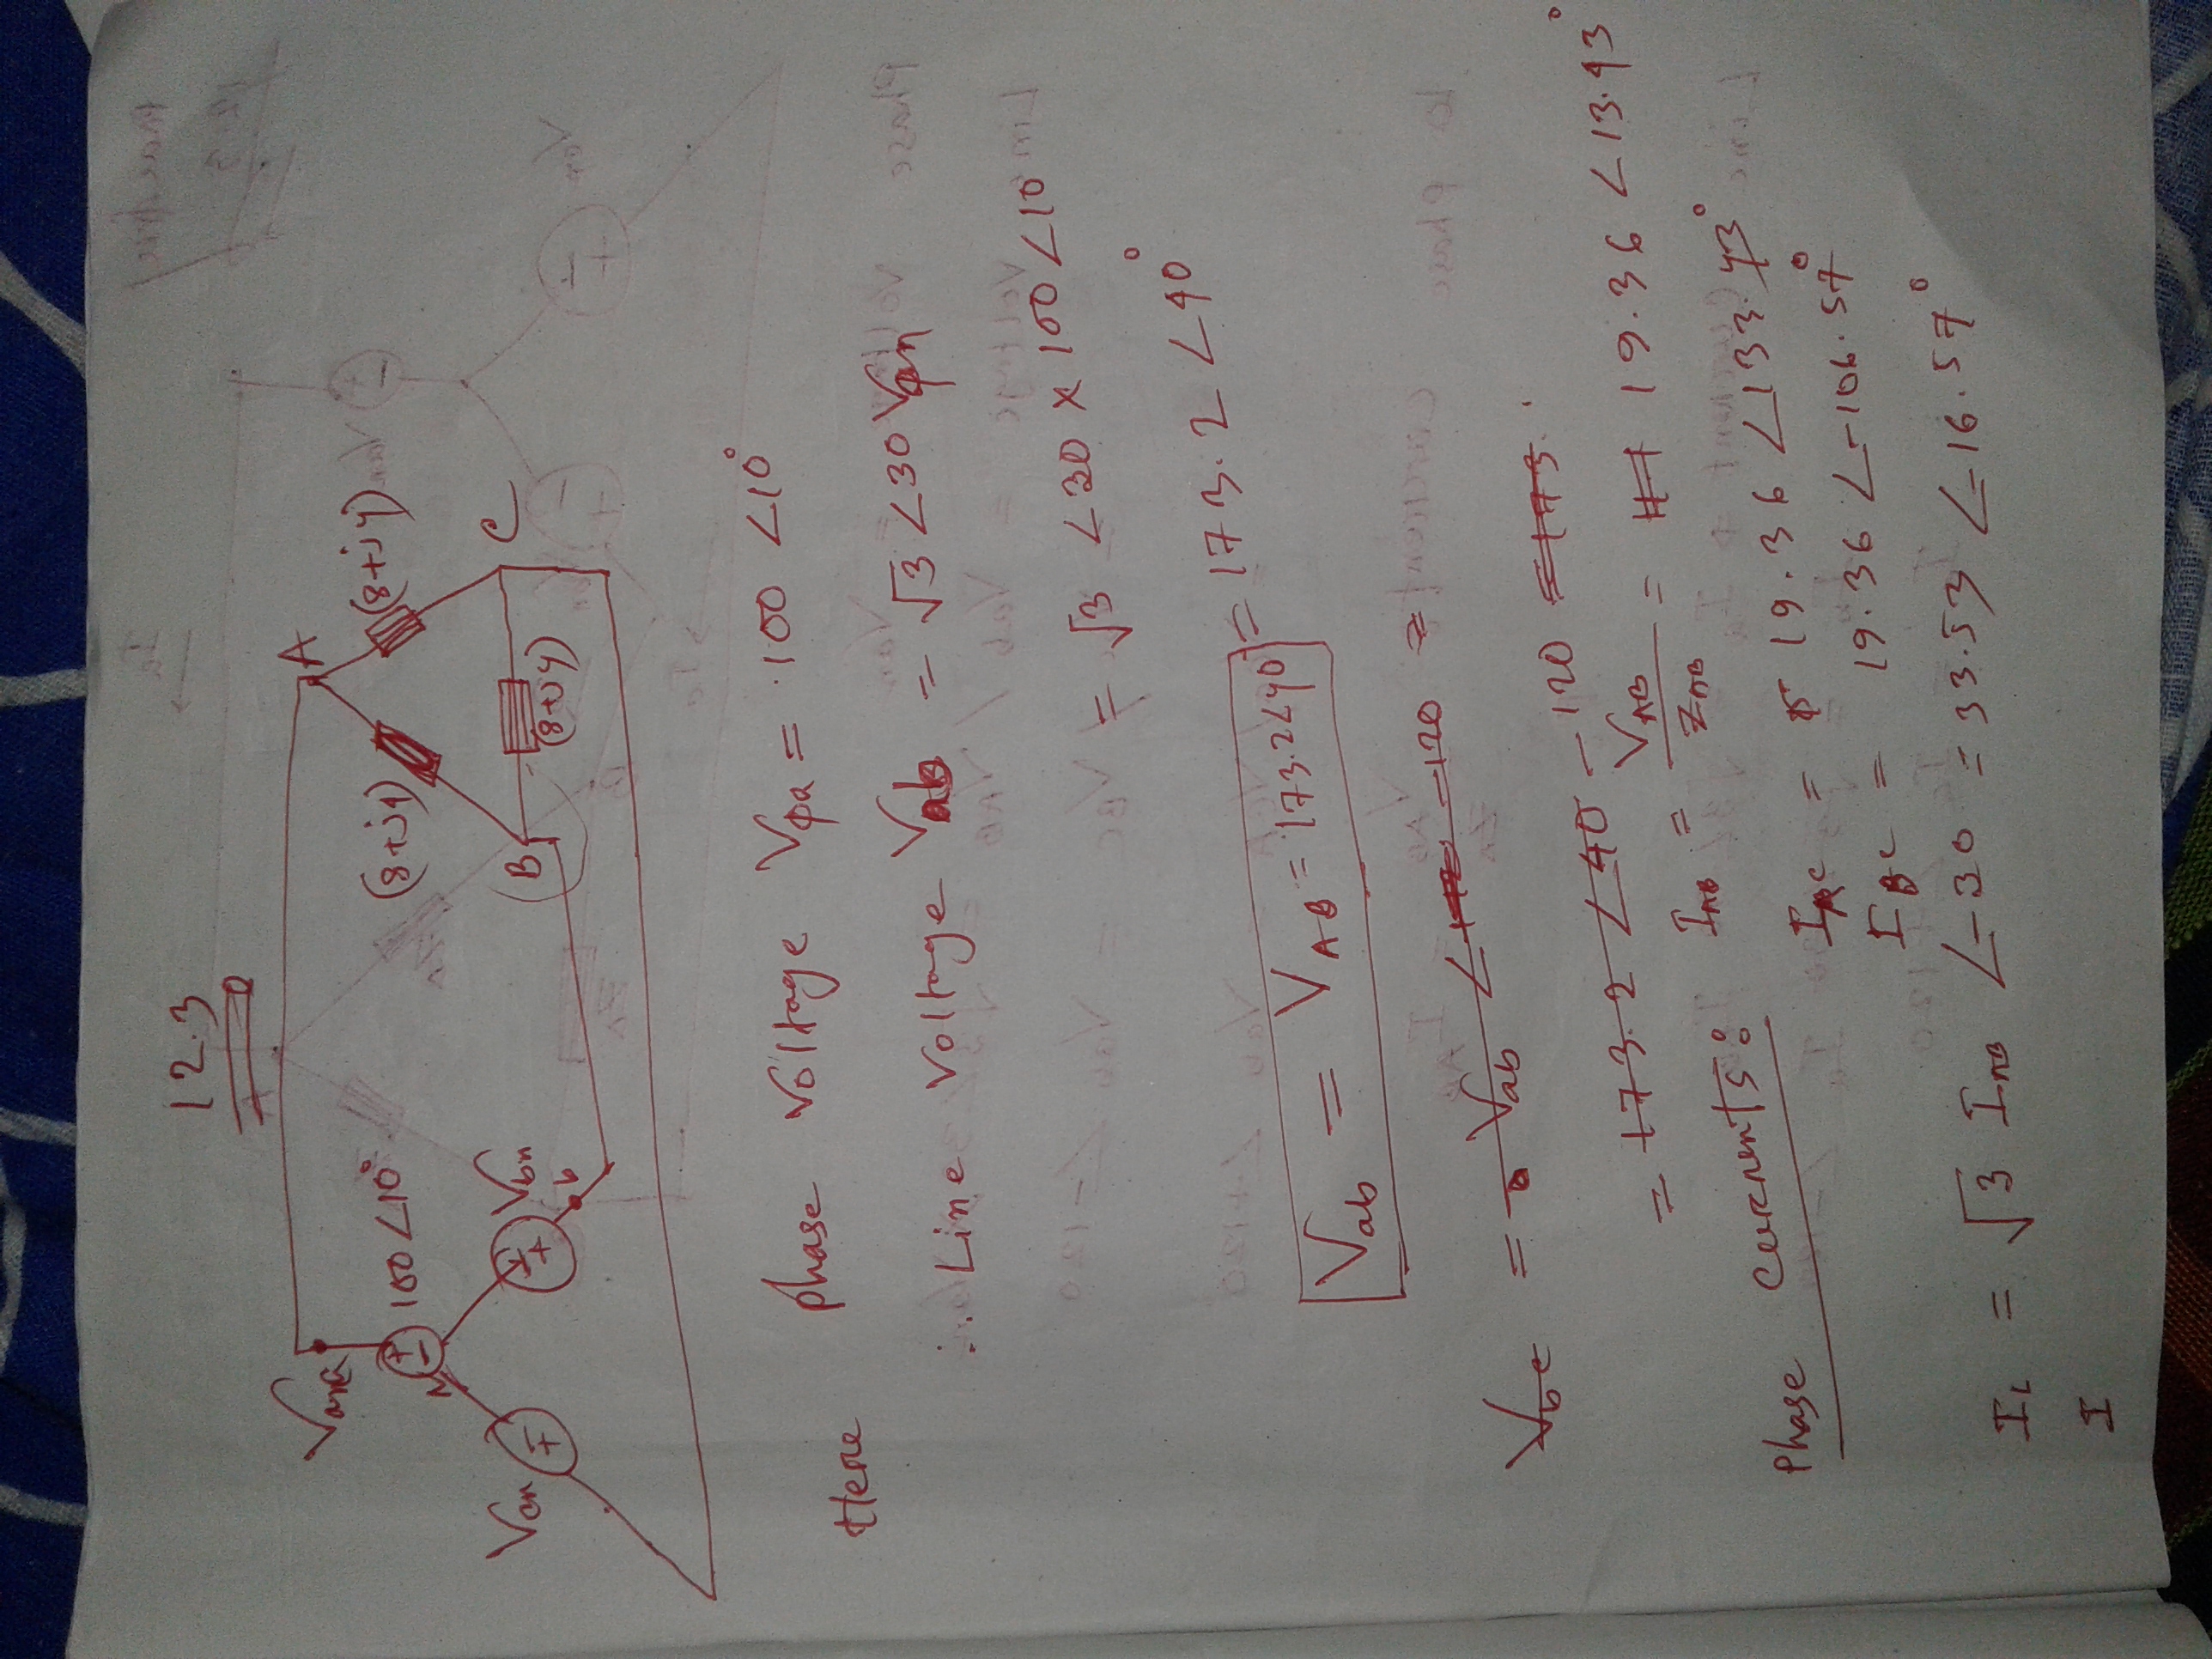 12.3
Vana
100∠10°
N
Vcn
Vbn
b
A
(8+j4)
(8+j4)
B
C
(8+j4)
Here Phase Voltage Vφa = 100 ∠10°
∴ Line Voltage Vab = √3 ∠30 Vφn
= √3 ∠30 × 100 ∠10
= 173.2 ∠40°
Vab = VAB = 173.2∠40
Vbc = Vab ∠ -120 =
= 173.2 ∠40 - 120 = 173.
Phase currents: IAB = VAB / ZAB = 19.36 ∠13.43°
IAC = 19.36 ∠133.43°
IBC = 19.36 ∠-106.57°
IL = √3 IAB ∠-30 = 33.53 ∠-16.57°
I